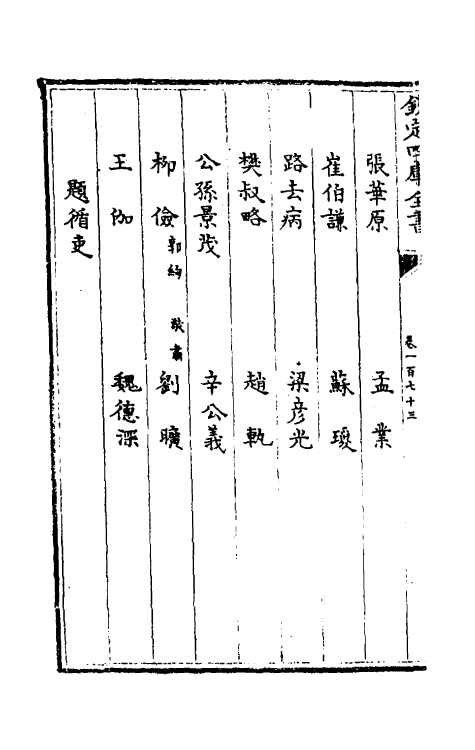 欽定四庫全書
卷一百七十三
張華原 孟業
崔伯謙 蘇瓊
路去病 梁彦光
樊叔略 趙軌
公孫景茂 辛公義
柳儉 郭絢 敬肅 劉曠
王伽 魏德深
題循吏